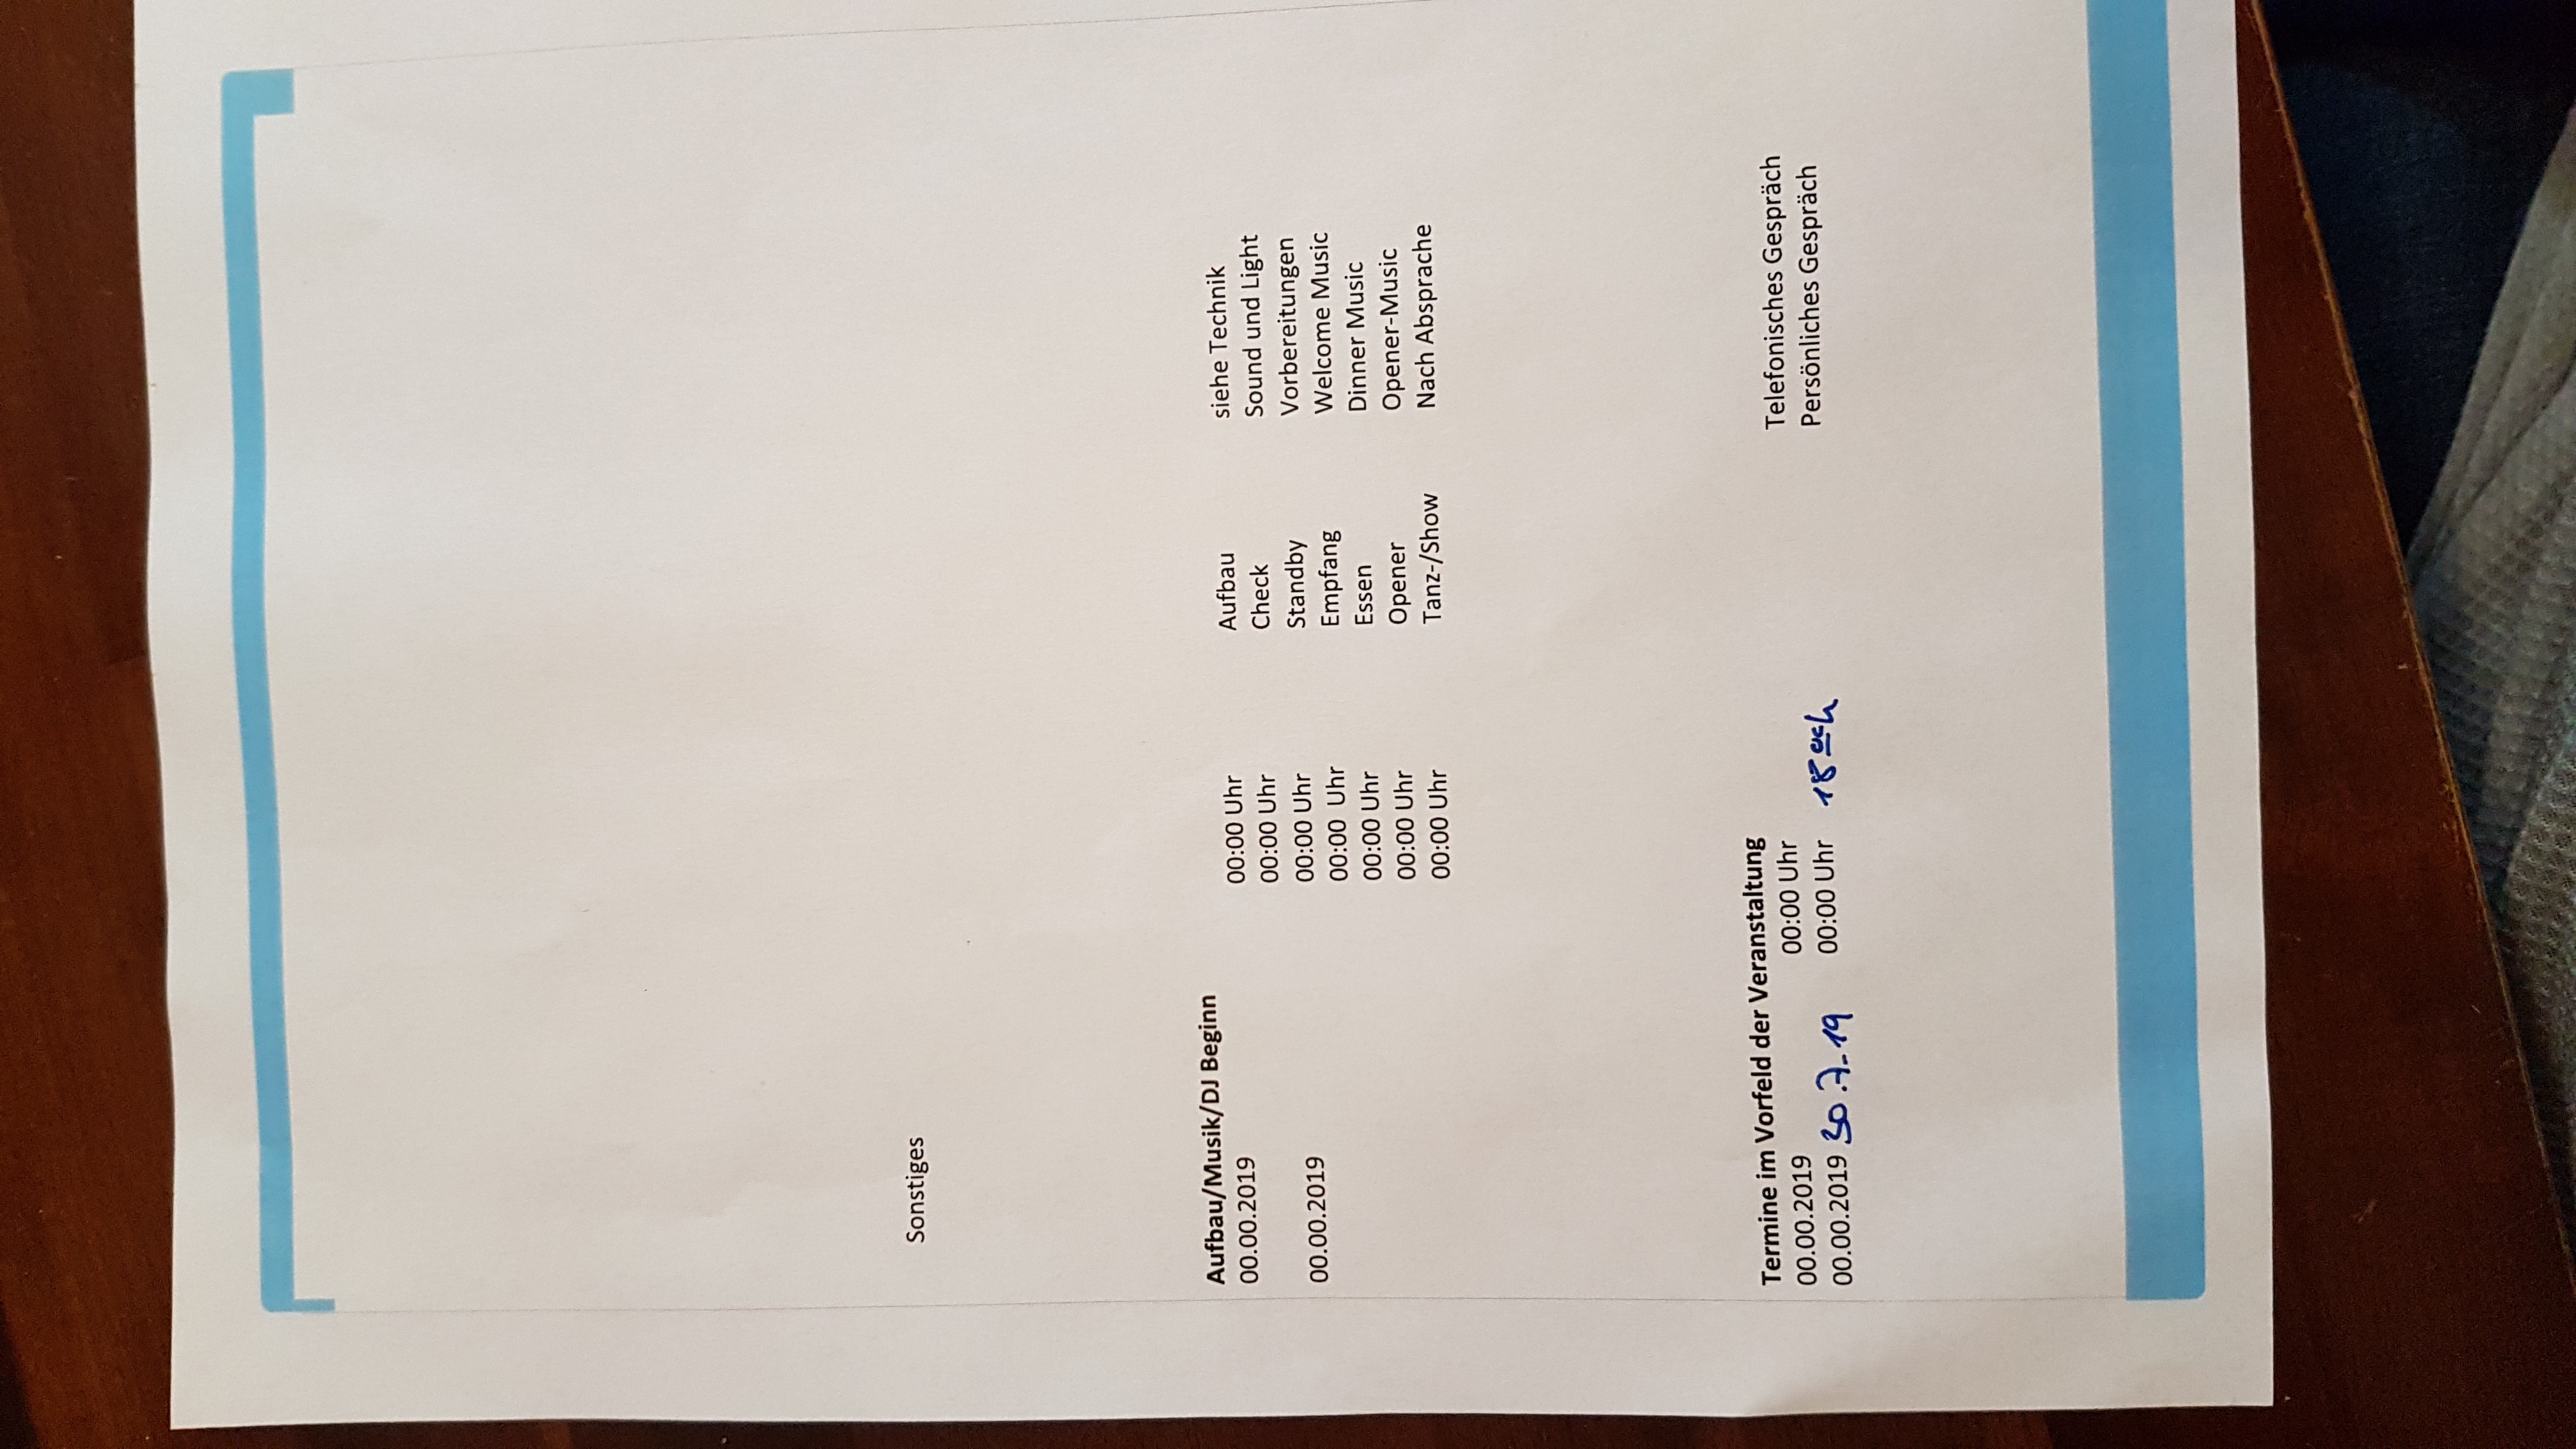 Sonstiges
Aufbau/Musik/DJ Beginn
00.00.2019 00:00 Uhr Aufbau siehe Technik
00:00 Uhr Check Sound und Light
00.00.2019 00:00 Uhr Standby Vorbereitungen
00:00 Uhr Empfang Welcome Music
00:00 Uhr Essen Dinner Music
00:00 Uhr Opener Opener-Music
00:00 Uhr Tanz-/Show Nach Absprache
Termine im Vorfeld der Veranstaltung
00.00.2019 00:00 Uhr Telefonisches Gespräch
00.00.2019 30.7.19 00:00 Uhr 18 ooh Persönliches Gespräch